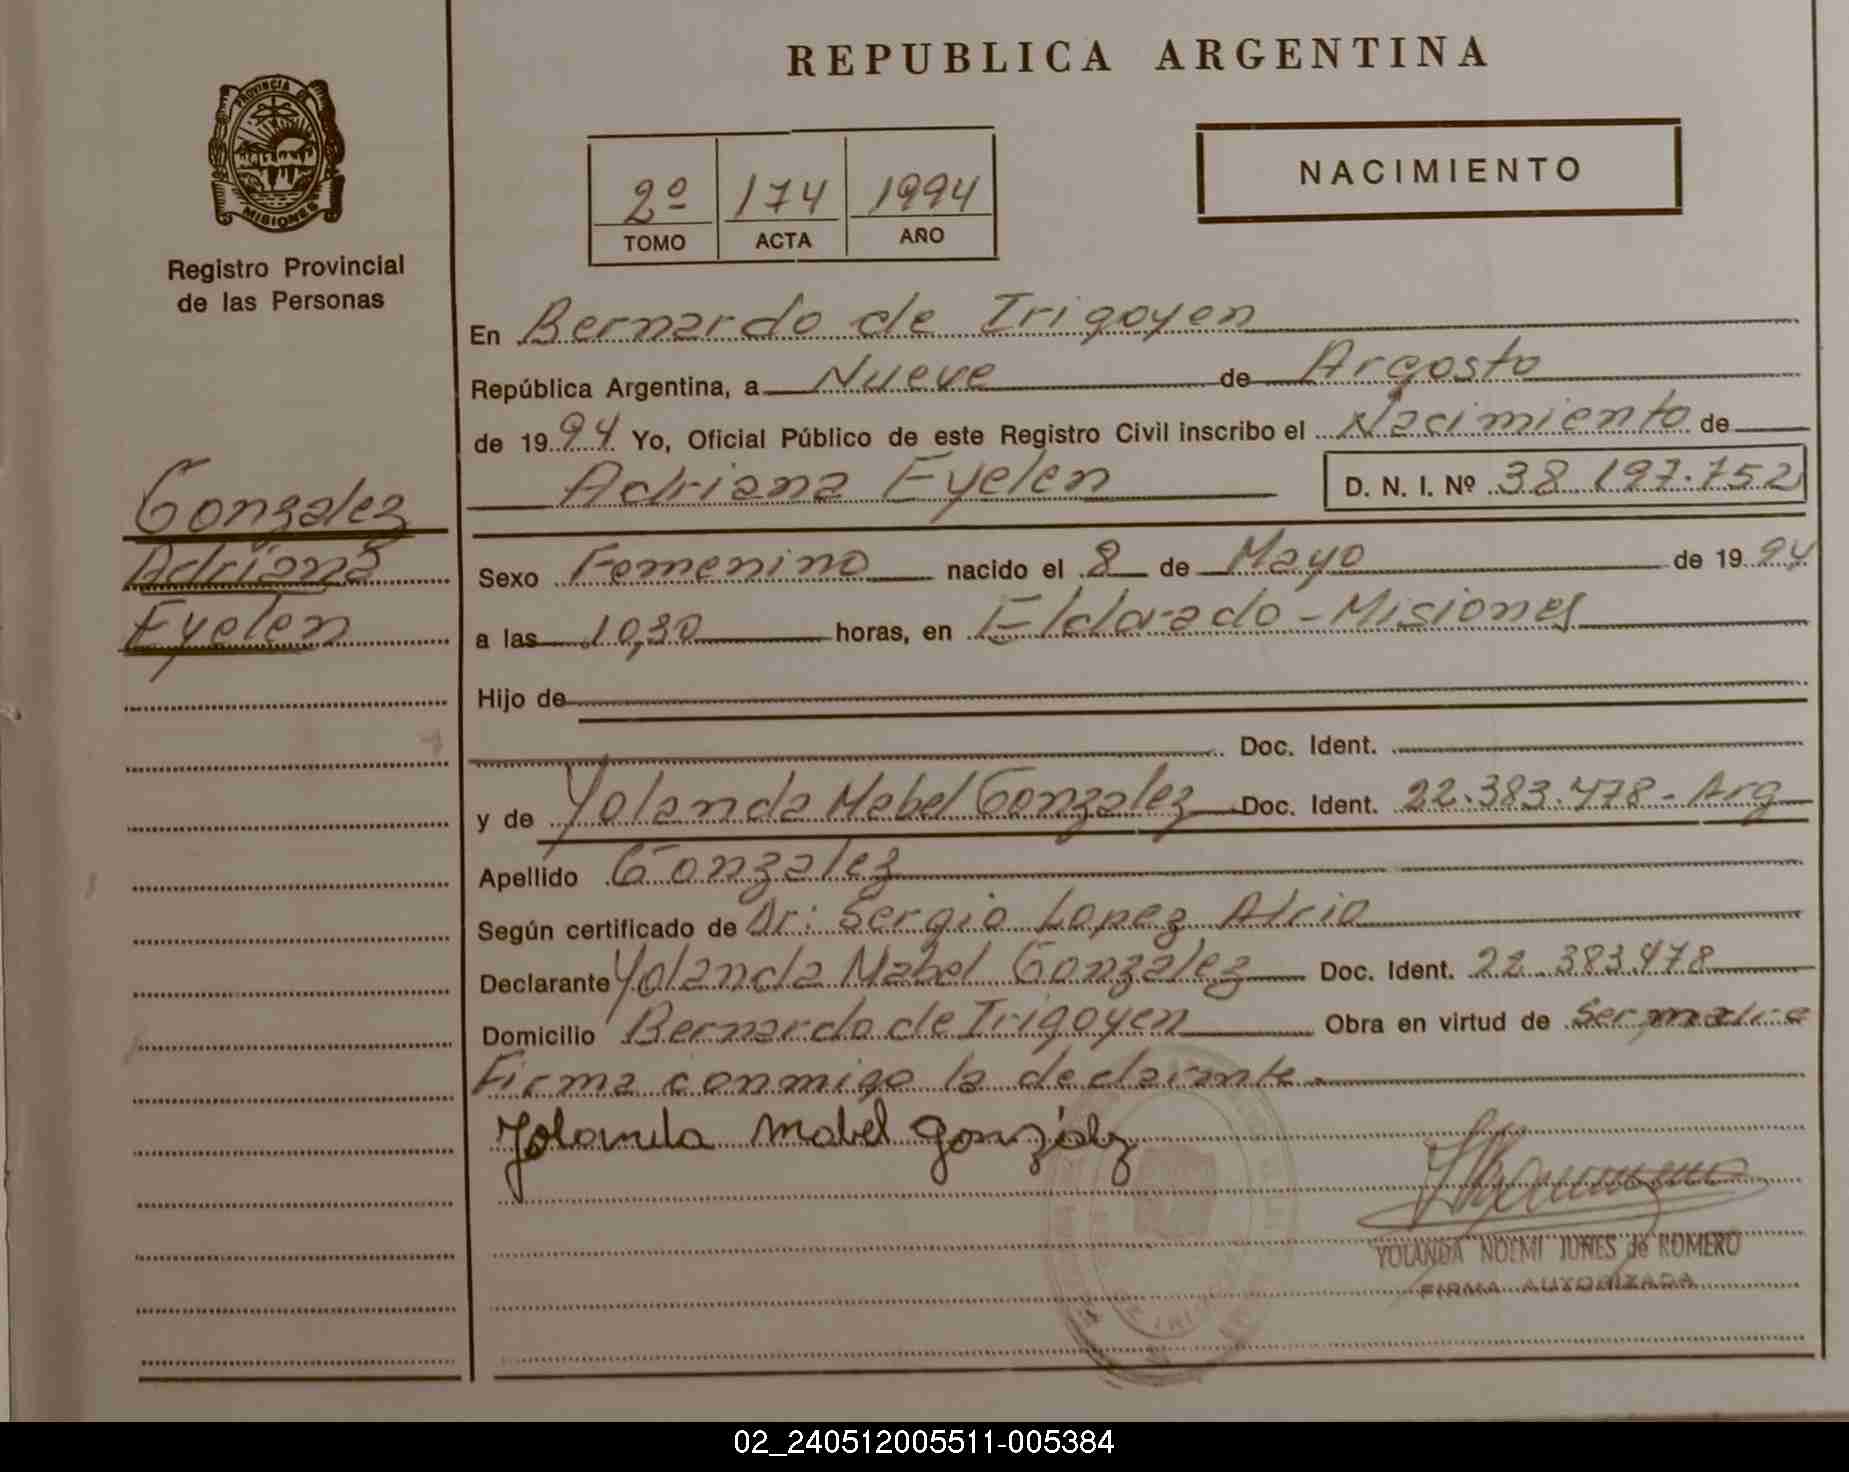 REPUBLICA ARGENTINA
PROVINCIA DE
MISIONES
Registro Provincial
de las Personas
2º 174 1994
TOMO ACTA AÑO
NACIMIENTO
En Bernardo de Irigoyen
República Argentina, a Nueve de Argosto
de 1994 Yo, Oficial Público de este Registro Civil inscribo el Nacimiento de
Adriana Eyelen D. N. I. Nº 38.197.752
Gonzalez
Adriana
Eyelen
Sexo Femenino nacido el 8 de Mayo de 1994
a las 10,30 horas, en Eldorado - Misiones
Hijo de
Doc. Ident.
y de Yolanda Mabel Gonzalez Doc. Ident. 22.383.478 - Arg
Apellido Gonzalez
Según certificado de Dr: Sergio Lopez Atrio
Declarante Yolanda Mabel Gonzalez Doc. Ident. 22.383.478
Domicilio Bernardo de Irigoyen Obra en virtud de Ser madre
Firma conmigo la declarante.
Yolanda Mabel González
YOLANDA NOEMI JUNES de ROMERO
FIRMA AUTORIZADA
02_240512005511-005384